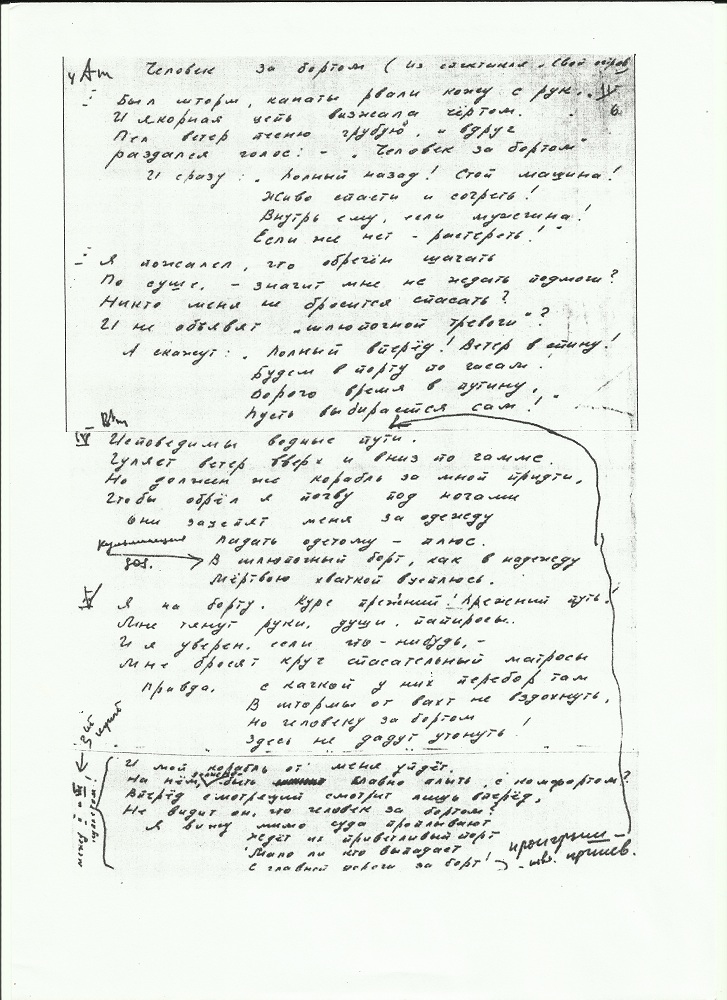 Am Человек за бортом (из спектакля „Свой остров
Был шторм, канаты рвали кожу с рук.. IV
И якорная цепь визжала чёртом. 6
Пел ветер песню грубую, и вдруг
раздался голос: - „Человек за бортом"
И сразу: „Полный назад! Стоп машина!
Живо спасти и согреть!
Внутрь ему, если мужчина!
Если же нет - растереть!"
Я пожалел, что обречён шагать
По суше, - значит мне не ждать подмоги?
Никто меня не бросится спасать?
И не объявят „шлюпочной тревоги"?
А скажут: „Полный вперёд! Ветер в спину!
Будем в порту по часам.
Дорого время в путину,
Пусть выбирается сам!"
IV
Исповедимы водные пути.
Гуляет ветер вверх и вниз по гамме.
Но должен же корабль за мной придти,
Чтобы обрёл я почву под ногами
Они зацепят меня за одежду
Падать одетому - плюс.
кульминация
В шлюпочный борт, как в надежду
Мёртвою хваткой вцеплюсь.
V
Я на борту. Курс прежний! Прежний путь!
Мне тянут руки, души, папиросы..
И я уверен, если что-нибудь, -
Мне бросят круг спасательный матросы
Правда, с качкой у них перебор там
В штормы от вахт не вздохнуть,
Но человеку за бортом
Здесь не дадут утонуть!
И мой корабль от меня уйдёт.
На нём, должно быть славно плыть с комфортом?
Вперёд смотрящий смотрит лишь вперёд,
Не видит он, что человек за бортом!
Я вижу мимо суда проплывают
Ждёт их приветливый порт
Мало ли кто выпадает
С главной дороги за борт!
проигрыш -
припев.